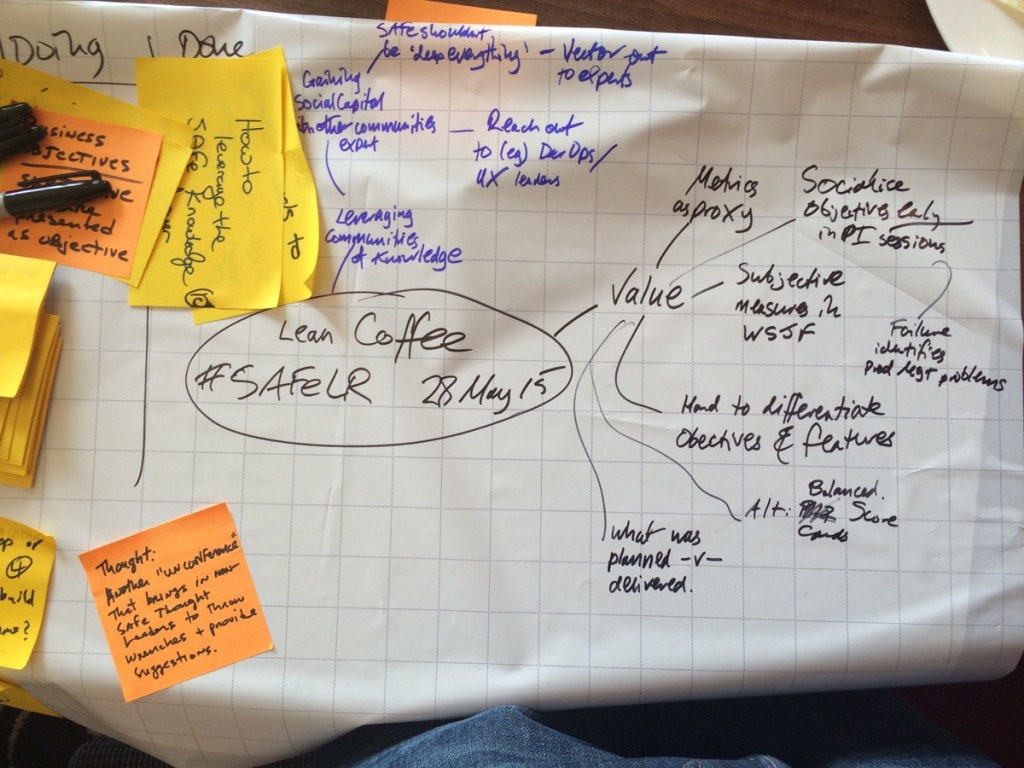 Doing
Done
BUSINESS
OBJECTIVES
PRESENTED
AS OBJECTIVE
How to
leverage the
SAFe Knowledge
SAFe shouldn't
be 'deep everything'
- Vector out
to experts
Gaining
Social Capital
in other communities
expert
- Reach out
to (eg) DevOps/
UX leaders
Leveraging
Communities
of Knowledge
Lean Coffee
#SAFeLR 28 May 15
Value
Metrics
as proxy
Socialise
Objectives early
in PI sessions
Failure
identifies
Prod Mgt problems
Subjective
measures in
WSJF
Hard to differentiate
Obectives & features
Alt: Balanced
Score
Cards
What was
planned -v-
delivered.
build
Thought:
Another "unconference"
That brings in non-
SAFe Thought
Leaders to Throw
wrenches + provide
suggestions.